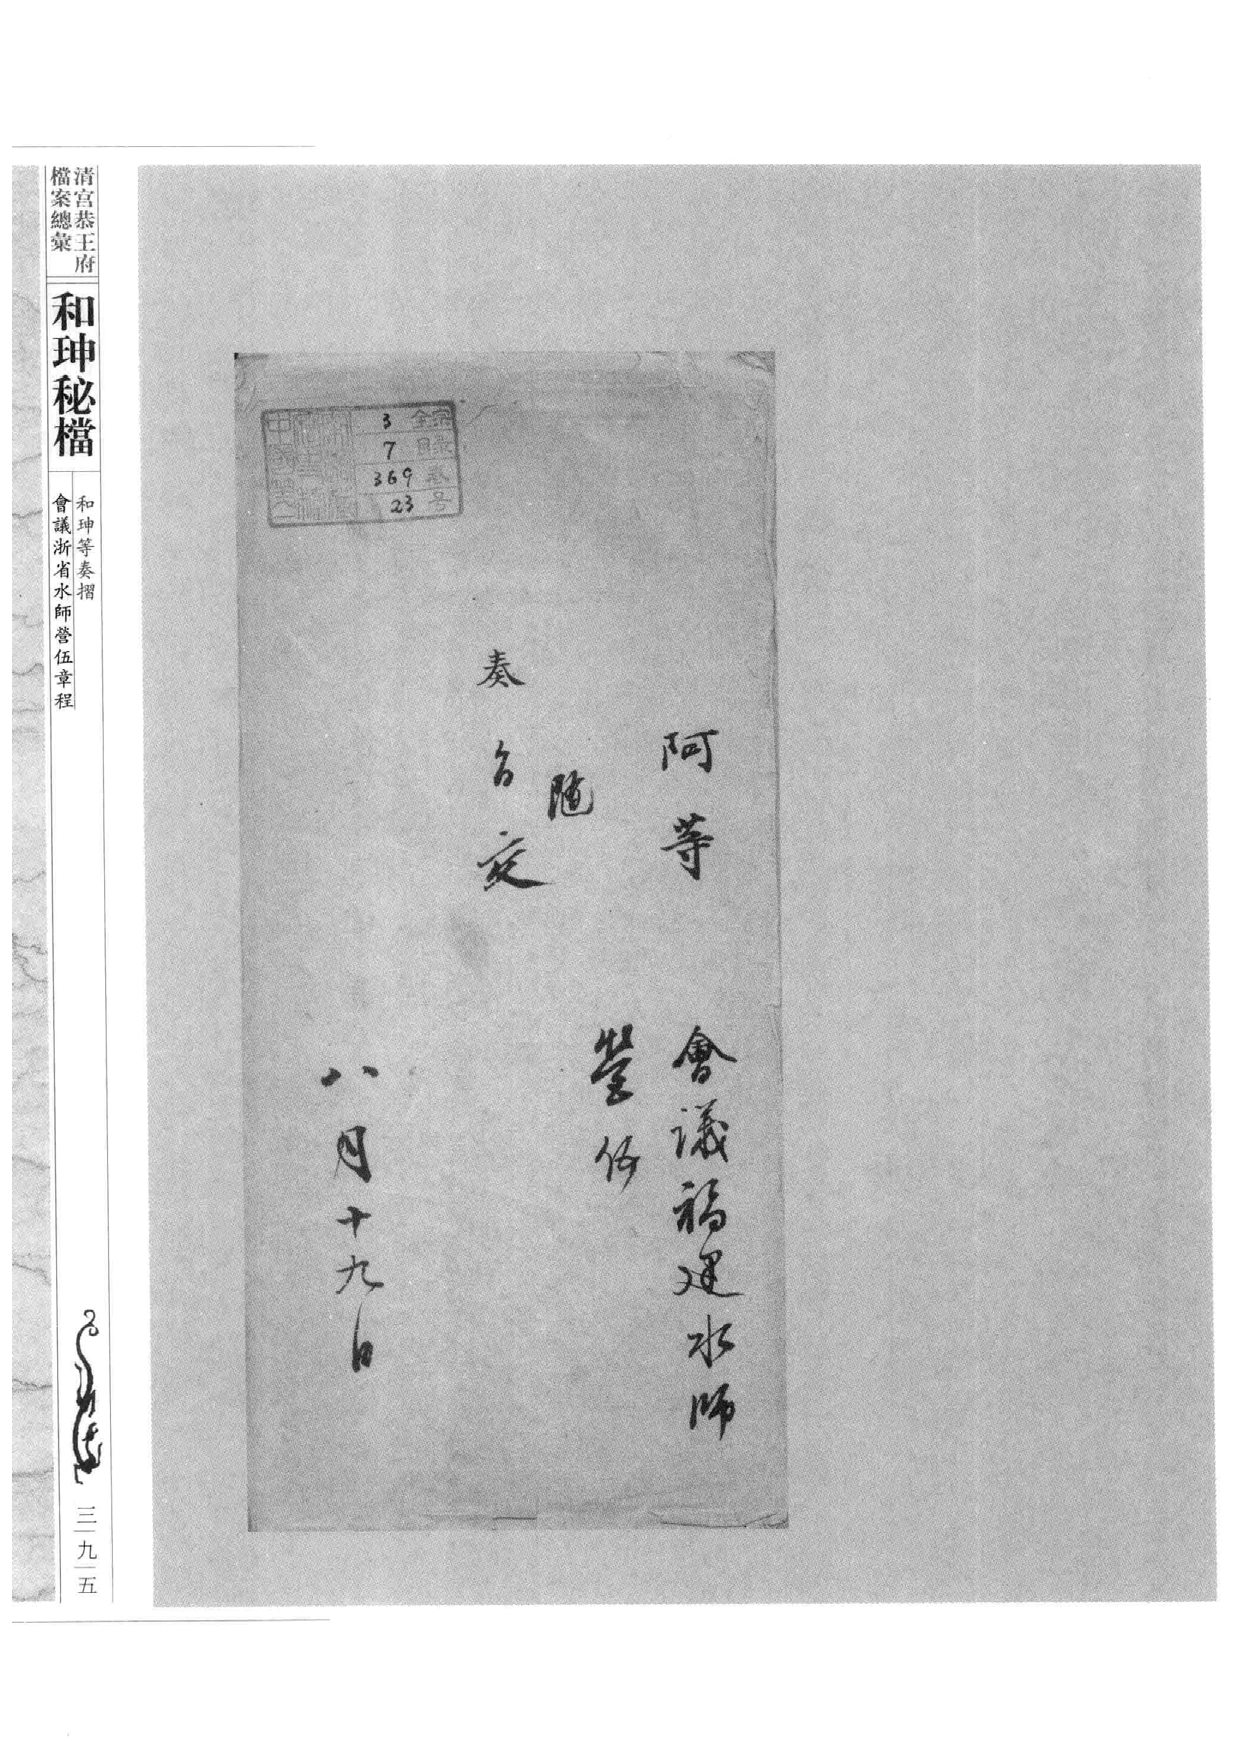 阿等
會議福建水師
營伍
隨
奏
旨交
八月十九日
全宗 3
目录 7
卷 369
号 23
清宮恭王府
檔案總彙
和珅秘檔
和珅等奏摺
會議浙省水師營伍章程
三九五